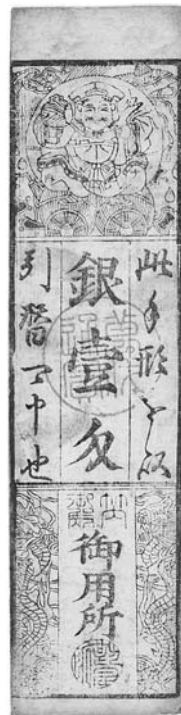 此手形を以
銀壹匁
引替可申也
御用所